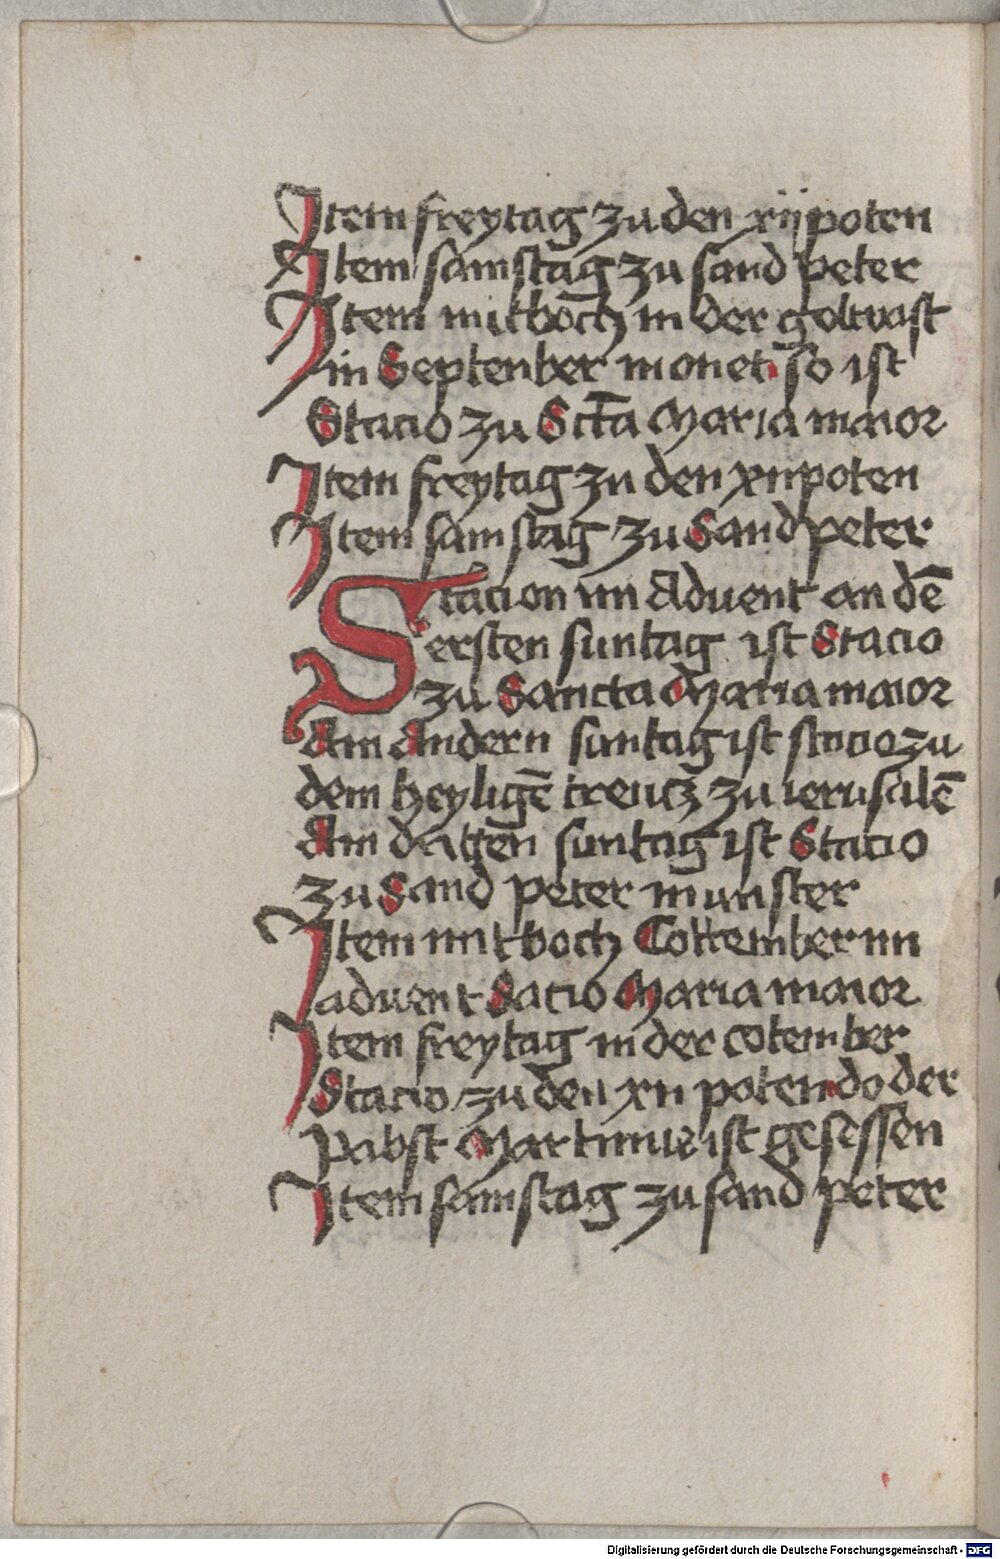 Item freytag zu den xij poten
Item samstag zu sand peter
Item mitboch in der goltvast
in September monet so ist
Stacio zu Scta Maria maior
Item freytag zu den xii poten
Item samstag zu Sand peter
Stacion im Advent an dē
ersten suntag ist Stacio
zu Sancta Maria maior
Am andern suntag ist stacio zu
dem heyligē creucz zu ierusalē
Am dritten suntag ist Stacio
zu Sand peter munster
Item mitboch Cottember im
advent Stacio Maria maior
Item freytag in der cotember
Stacio zu den xii poten do der
Pabst Martinus ist gesessen
Item samstag zu sand peter
Digitalisierung gefördert durch die Deutsche Forschungsgemeinschaft - DFG